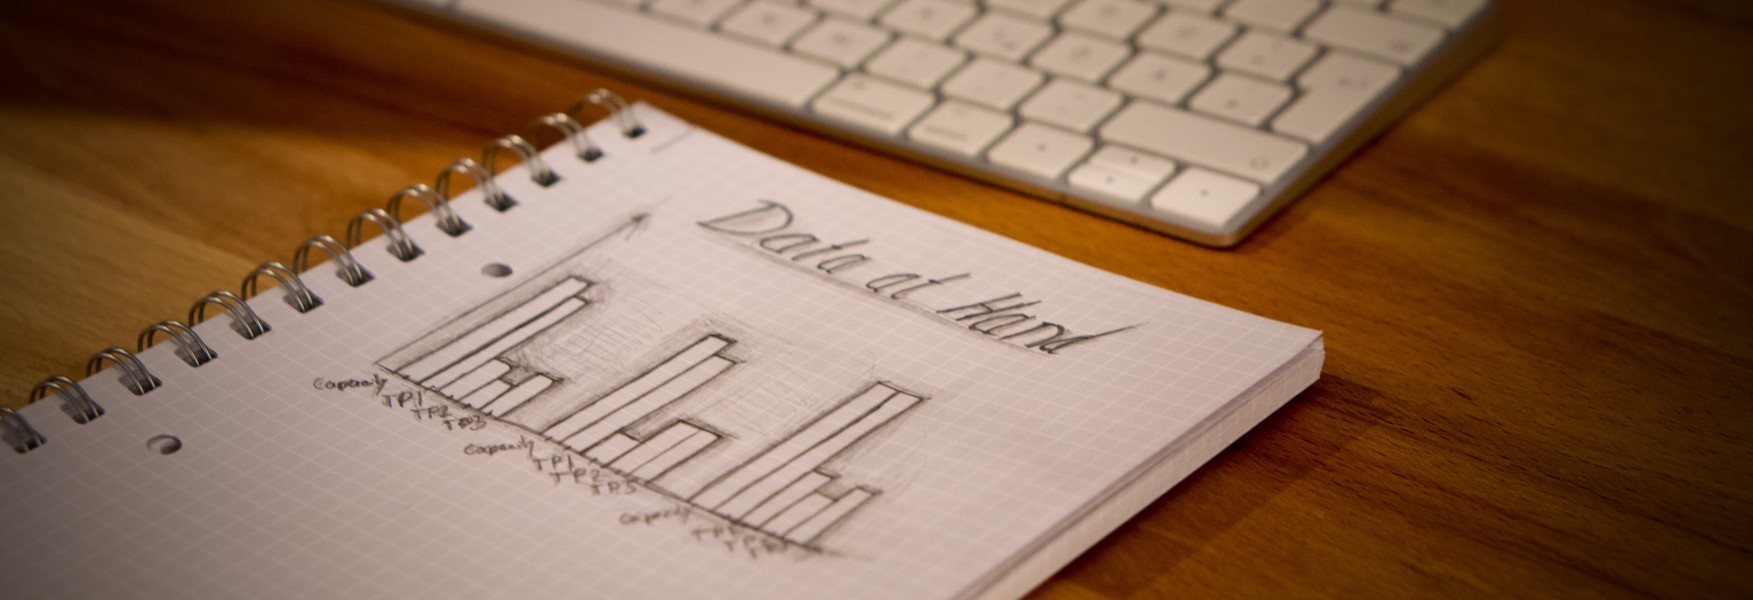 Data at Hand
Capacity
TP1
TP2
TP3
Capacity
TP1
TP2
TP3
Capacity